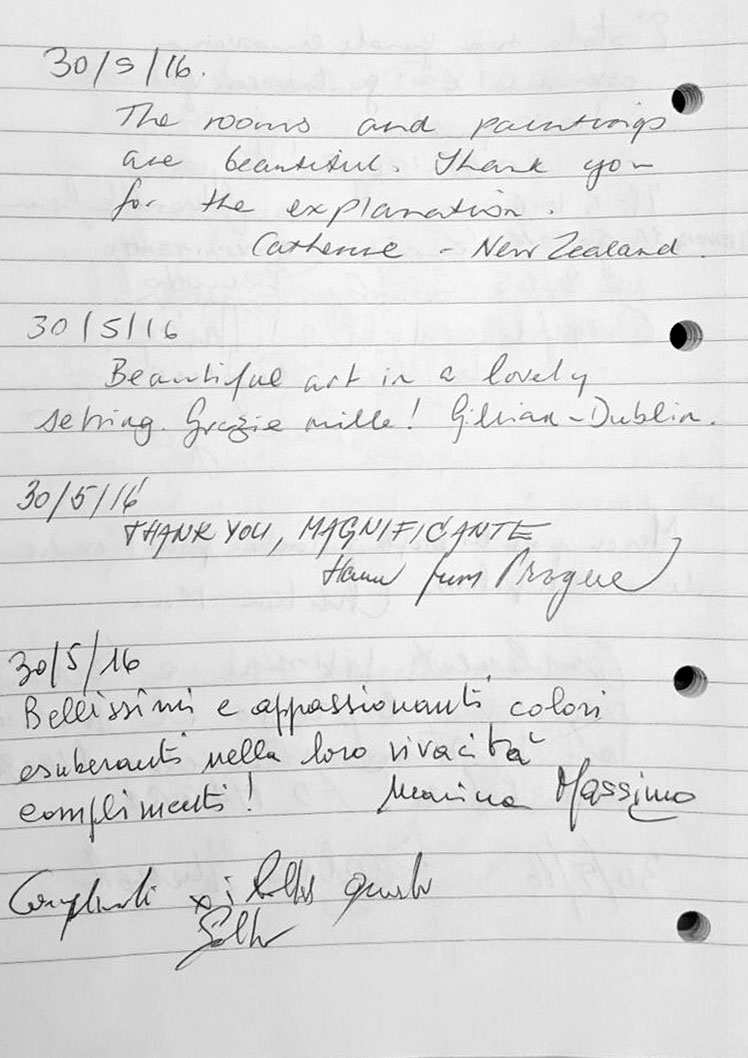 30/5/16.
The rooms and paintings
are beautiful. Thank you
for the explanation.
Catherine - New Zealand.
30/5/16
Beautiful art in a lovely
setting. Grazie mille! Gillian - Dublin.
30/5/16
THANK YOU, MAGNIFICANTE
from Prague
30/5/16
Bellissimi e appassionanti, colori
esuberanti nella loro vivacità
complimenti! Marina Massimo
Complimenti x i